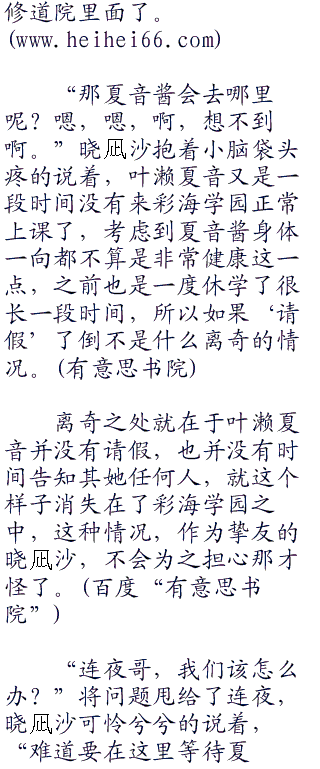 修道院里面了。
(www.heihei66.com)
“那夏音酱会去哪里
呢？嗯，嗯，啊，想不到
啊。”晓凪沙抱着小脑袋头
疼的说着，叶濑夏音又是一
段时间没有来彩海学园正常
上课了，考虑到夏音酱身体
一向都不算是非常健康这一
点，之前也是一度休学了很
长一段时间，所以如果‘请
假’了倒不是什么离奇的情
况。(有意思书院)
离奇之处就在于叶濑夏
音并没有请假，也并没有时
间告知其她任何人，就这个
样子消失在了彩海学园之
中，这种情况，作为挚友的
晓凪沙，不会为之担心那才
怪了。(百度“有意思书
院”)
“连夜哥，我们该怎么
办？”将问题甩给了连夜，
晓凪沙可怜兮兮的说着，
“难道要在这里等待夏